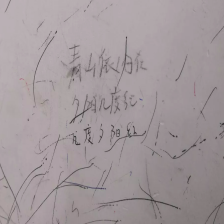 青山依旧在
夕阳几度红
几度夕阳红